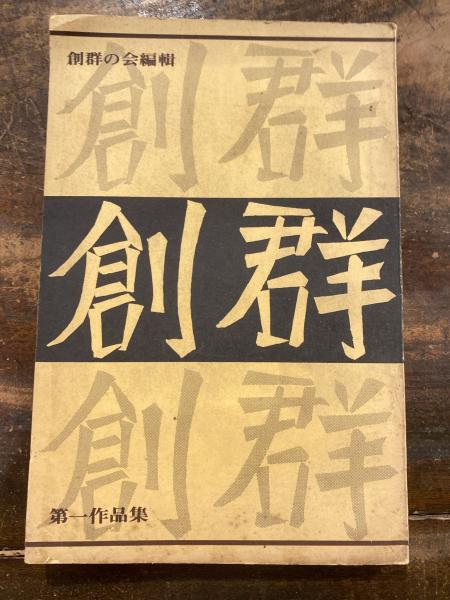 創群の会編輯
創群
創群
創群
第一作品集